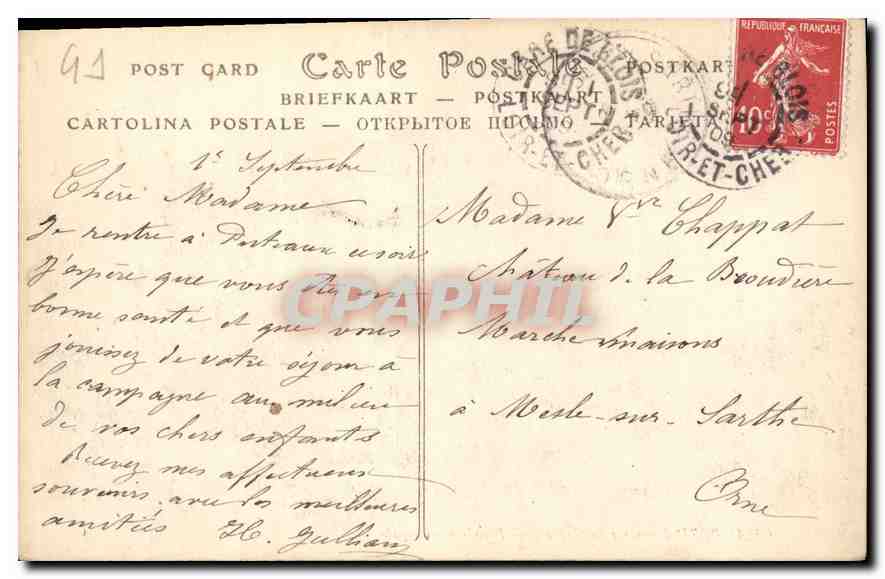 41
POST CARD Carte Postale POSTKAR
BRIEFKAART — POSTKAART
CARTOLINA POSTALE — ОТКРЫТОЕ ПИСЬМО — TARJETA
REPUBLIQUE FRANÇAISE
10c
POSTES
GARE DE BLOIS
LOIR-ET-CHER
BLOIS
SEPT
09
LOIR-ET-CHER
1r Septembre
Chère Madame
Je rentre à Puteaux ce soir
J'espère que vous êtes en
bonne santé et que vous
jouissez de votre séjour à
la campagne au milieu
de vos chers enfants
Recevez mes affectueux
souvenirs avec les meilleures
amitiés H. Jullian
Madame Vve Chappat
Château de la Beoudière
Marchemaisons
à Mesle-sur-Sarthe
Orne
CPAPHIL